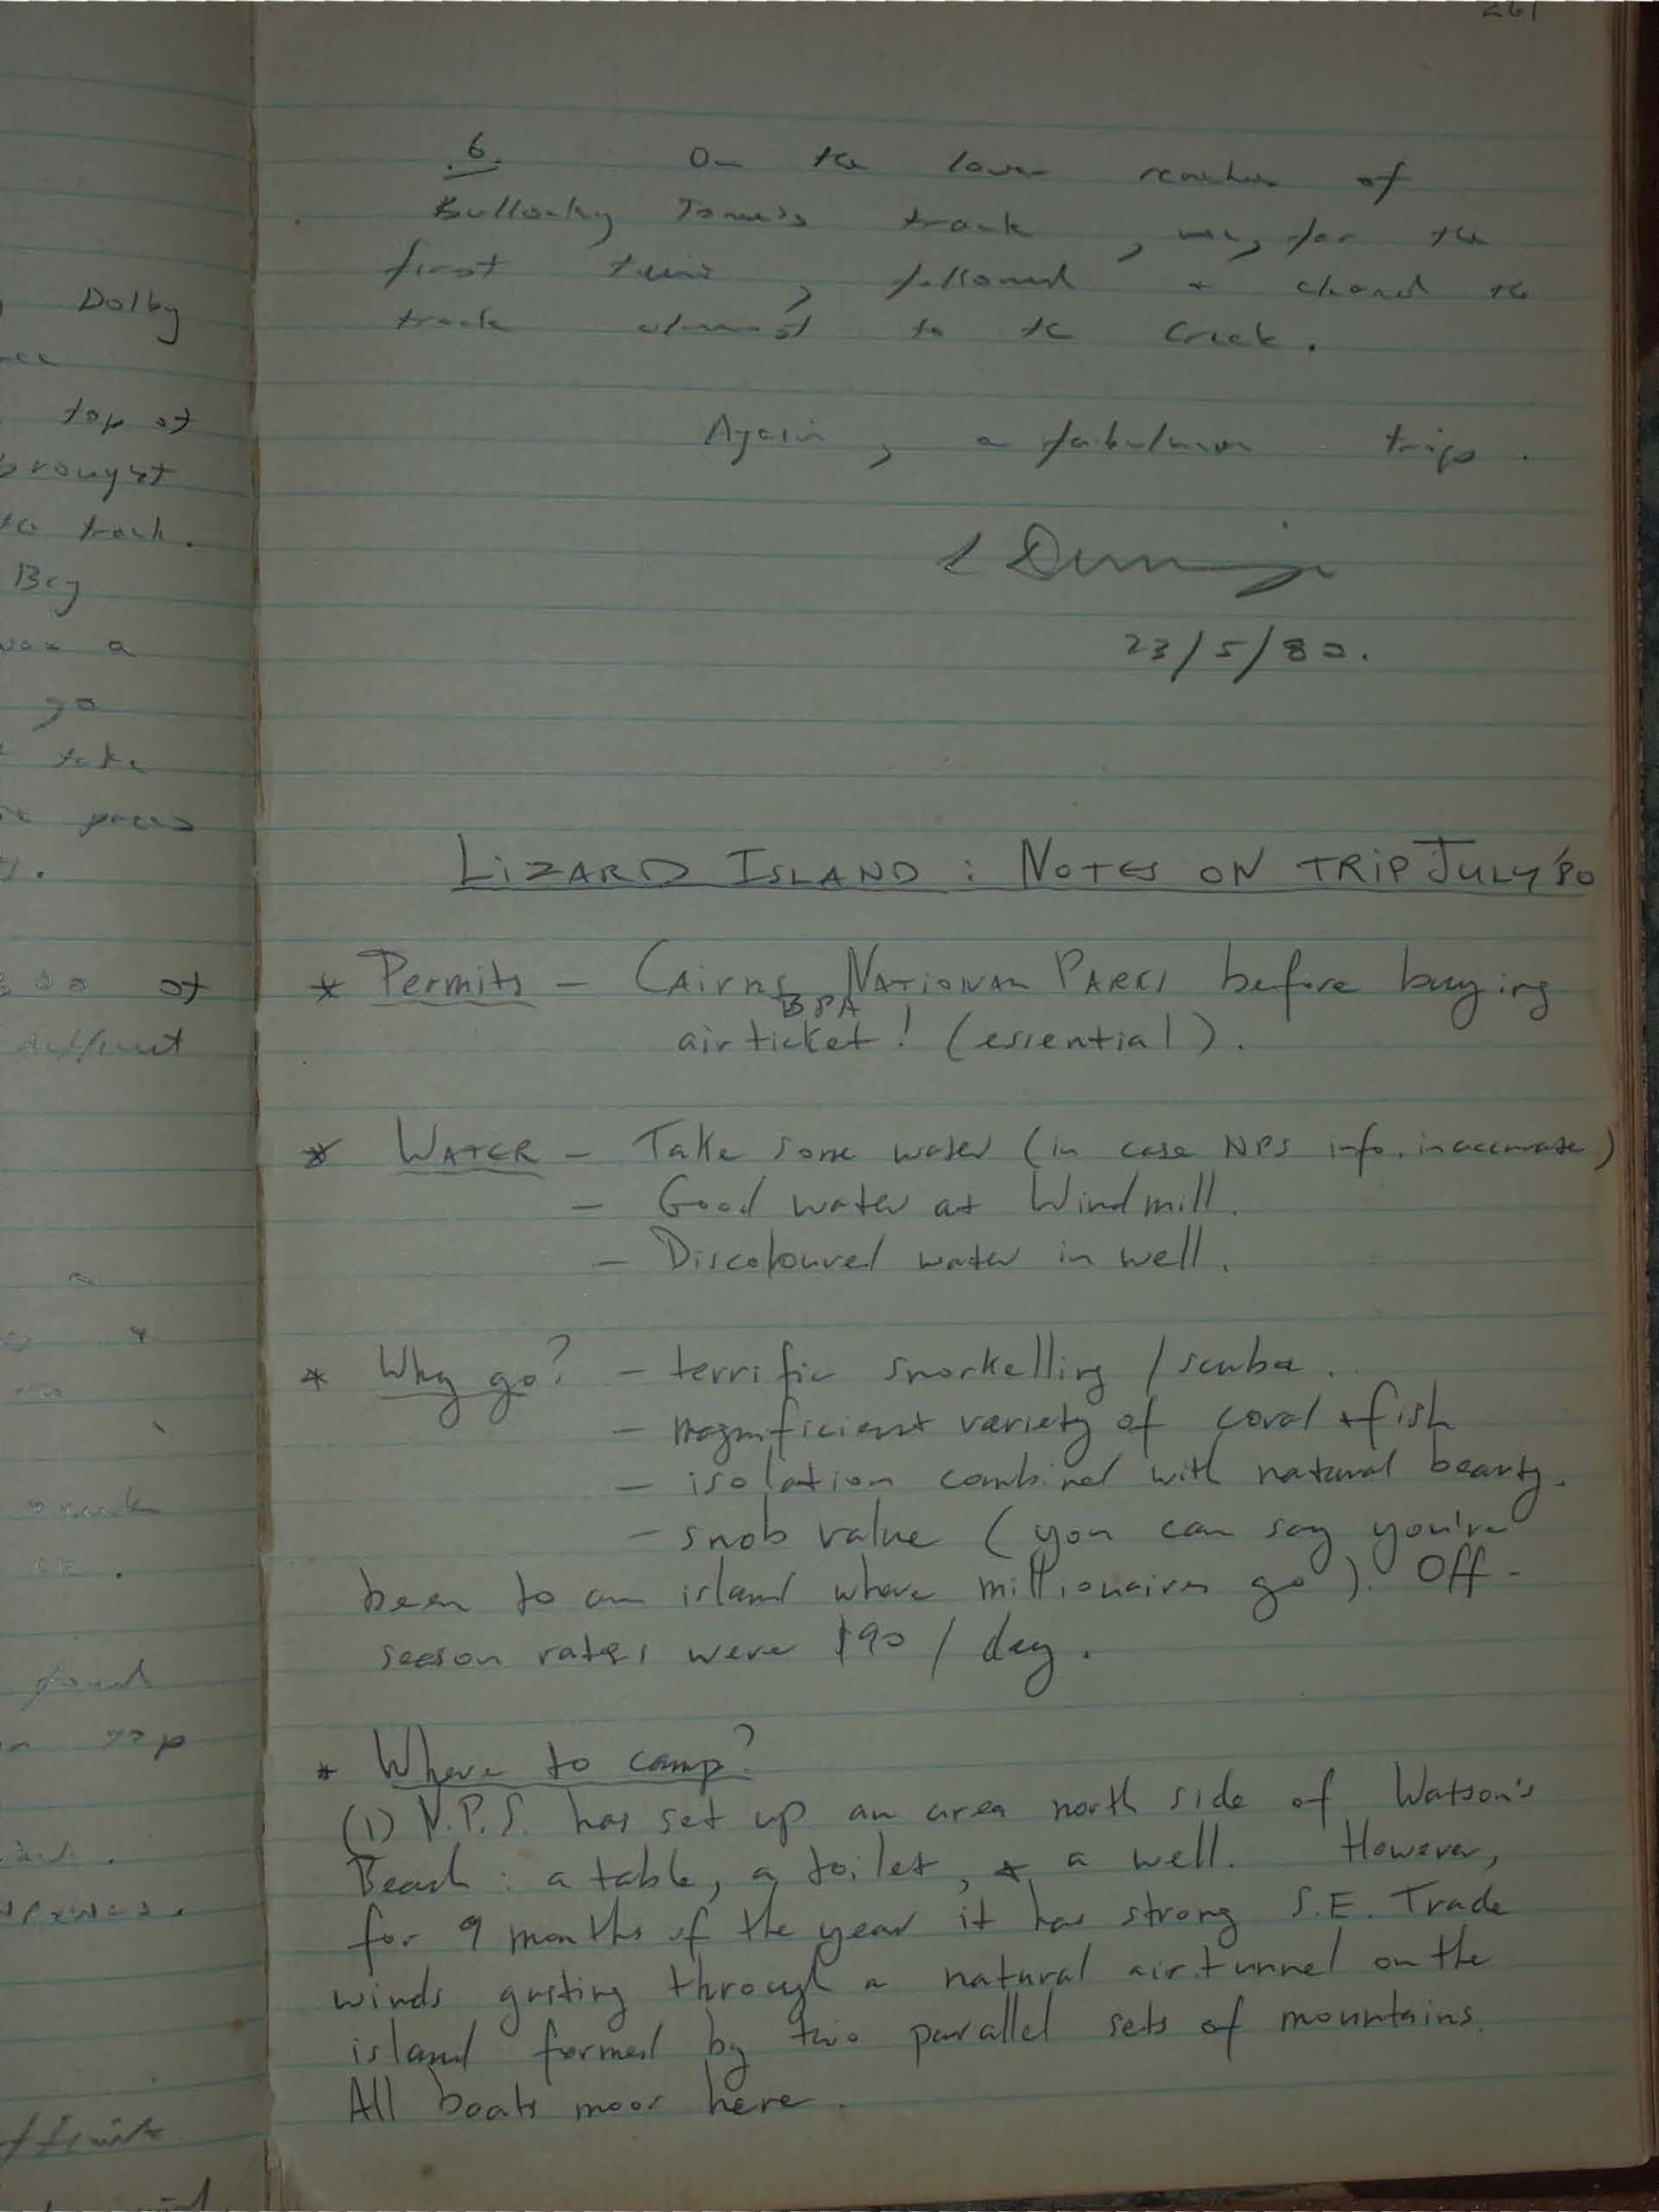 261
6. On the lower reaches of
Bullocky Tom's track, we, for the
first time, followed + cleared the
track almost to the creek.
Again, a fabulous trip.
23/5/80.
LIZARD ISLAND : NOTES ON TRIP JULY '80
* Permits - Cairns NATIONAL PARKS before buying
BPA
air ticket! (essential).
* WATER - Take some water (in case NPS info. inaccurate)
- Good water at Windmill.
- Discoloured water in well.
* Why go? - terrific snorkelling / scuba.
- magnificient variety of coral + fish
- isolation combined with natural beauty.
- snob value (you can say you've
been to an island where millionaires go). Off-
season rates were $90 / day.
* Where to camp?
(1) N.P.S. has set up an area north side of Watson's
Beach : a table, a toilet, + a well. However,
for 9 months of the year it has strong S.E. Trade
winds gusting through a natural air tunnel on the
island formed by two parallel sets of mountains.
All boats moor here.
Dolby
top of
brought
track.
Bey
a
go
take
paces
of
different
track
found
top